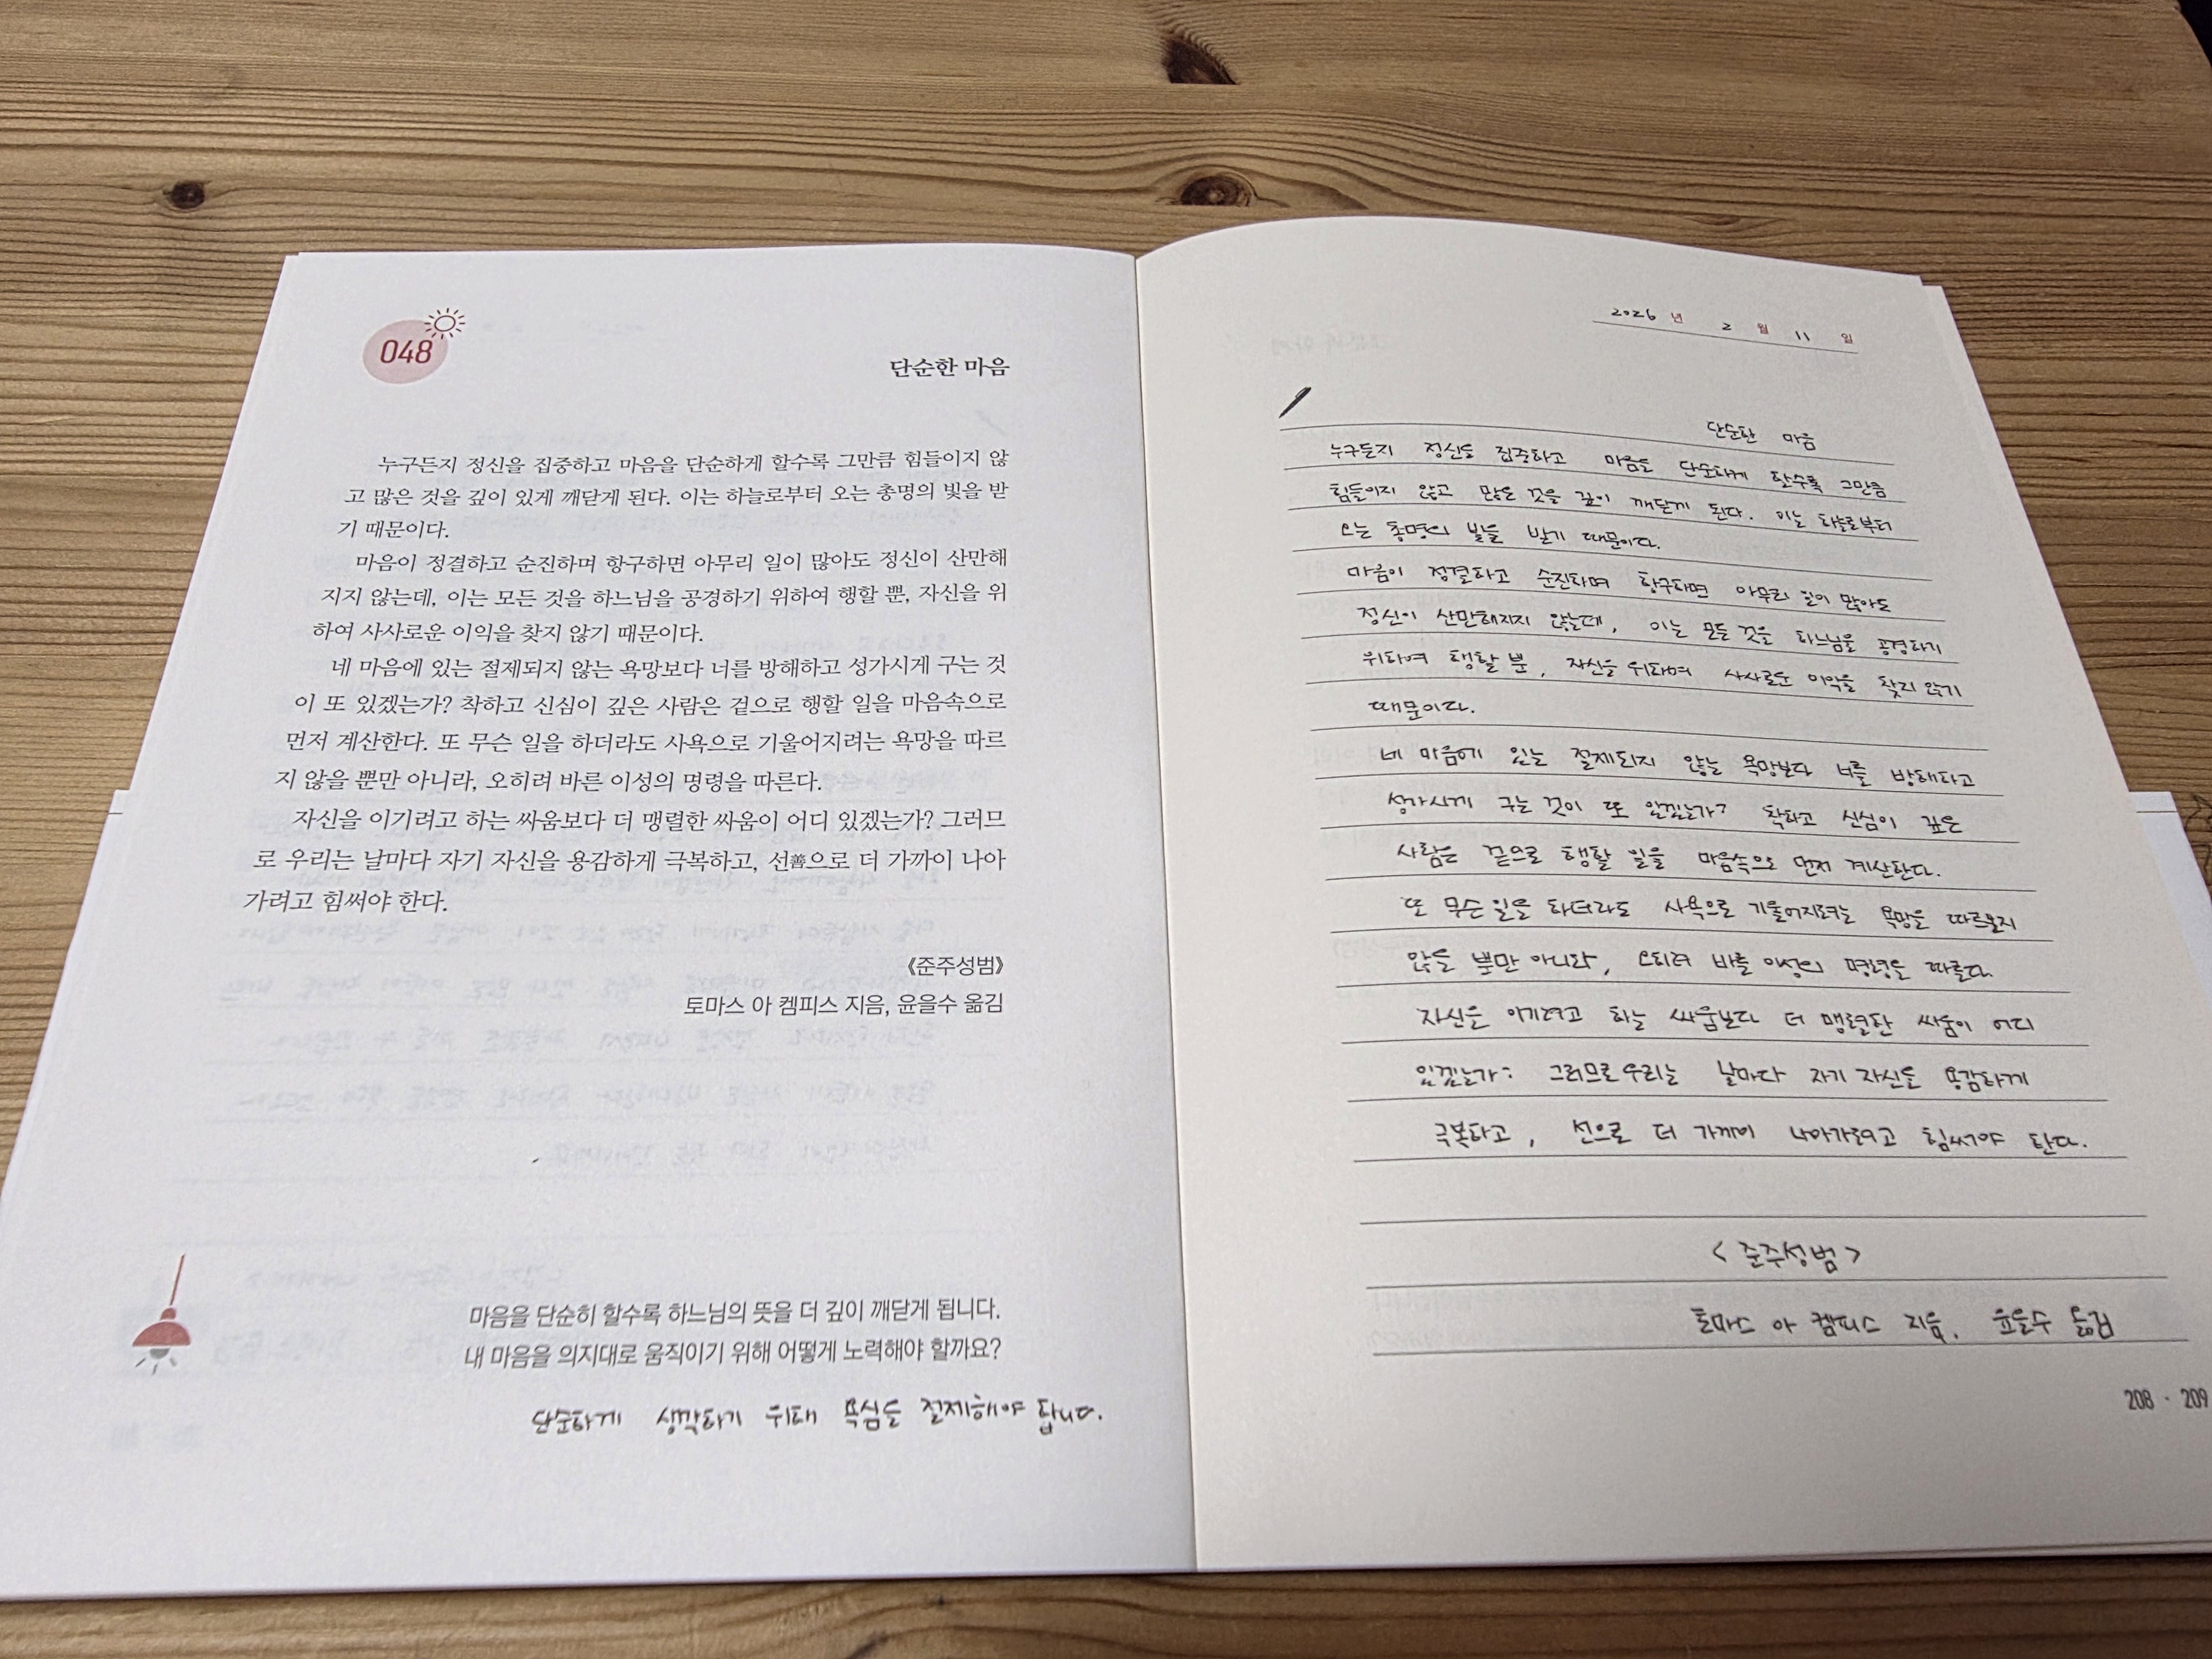 048
단순한 마음
누구든지 정신을 집중하고 마음을 단순하게 할수록 그만큼 힘들이지 않
고 많은 것을 깊이 있게 깨닫게 된다. 이는 하늘로부터 오는 총명의 빛을 받
기 때문이다.
마음이 정결하고 순진하며 항구하면 아무리 일이 많아도 정신이 산만해
지지 않는데, 이는 모든 것을 하느님을 공경하기 위하여 행할 뿐, 자신을 위
하여 사사로운 이익을 찾지 않기 때문이다.
네 마음에 있는 절제되지 않는 욕망보다 너를 방해하고 성가시게 구는 것
이 또 있겠는가? 착하고 신심이 깊은 사람은 겉으로 행할 일을 마음속으로
먼저 계산한다. 또 무슨 일을 하더라도 사욕으로 기울어지려는 욕망을 따르
지 않을 뿐만 아니라, 오히려 바른 이성의 명령을 따른다.
자신을 이기려고 하는 싸움보다 더 맹렬한 싸움이 어디 있겠는가? 그러므
로 우리는 날마다 자기 자신을 용감하게 극복하고, 선善으로 더 가까이 나아
가려고 힘써야 한다.
《준주성범》
토마스 아 켐피스 지음, 윤을수 옮김
마음을 단순히 할수록 하느님의 뜻을 더 깊이 깨닫게 됩니다.
내 마음을 의지대로 움직이기 위해 어떻게 노력해야 할까요?
단순하게 생각하기 위해 욕심을 절제해야 합니다.
2026 년 2 월 11 일
단순한 마음
누구든지 정신을 집중하고 마음을 단순하게 할수록 그만큼
힘들이지 않고 많은 것을 깊이 깨닫게 된다. 이는 하늘로부터
오는 총명의 빛을 받기 때문이다.
마음이 정결하고 순진하며 항구하면 아무리 일이 많아도
정신이 산만해지지 않는데, 이는 모든 것을 하느님을 공경하기
위하여 행할 뿐, 자신을 위하여 사사로운 이익을 찾지 않기
때문이다.
네 마음에 있는 절제되지 않는 욕망보다 너를 방해하고
성가시게 구는 것이 또 있겠는가? 착하고 신심이 깊은
사람은 겉으로 행할 일을 마음속으로 먼저 계산한다.
또 무슨 일을 하더라도 사욕으로 기울어지려는 욕망을
않을 뿐만 아니라, 오히려 바를 이성의 명령을 따른다.
자신을 이기려고 하는 싸움보다 더 맹렬한 싸움이 어디
있겠는가? 그러므로 우리는 날마다 자기 자신을 용감하게
극복하고, 선으로 더 가까이 나아가려고 힘써야 한다.
<준주성범>
토마스 아 켐피스 지음, 윤을수 옮김
208 · 209